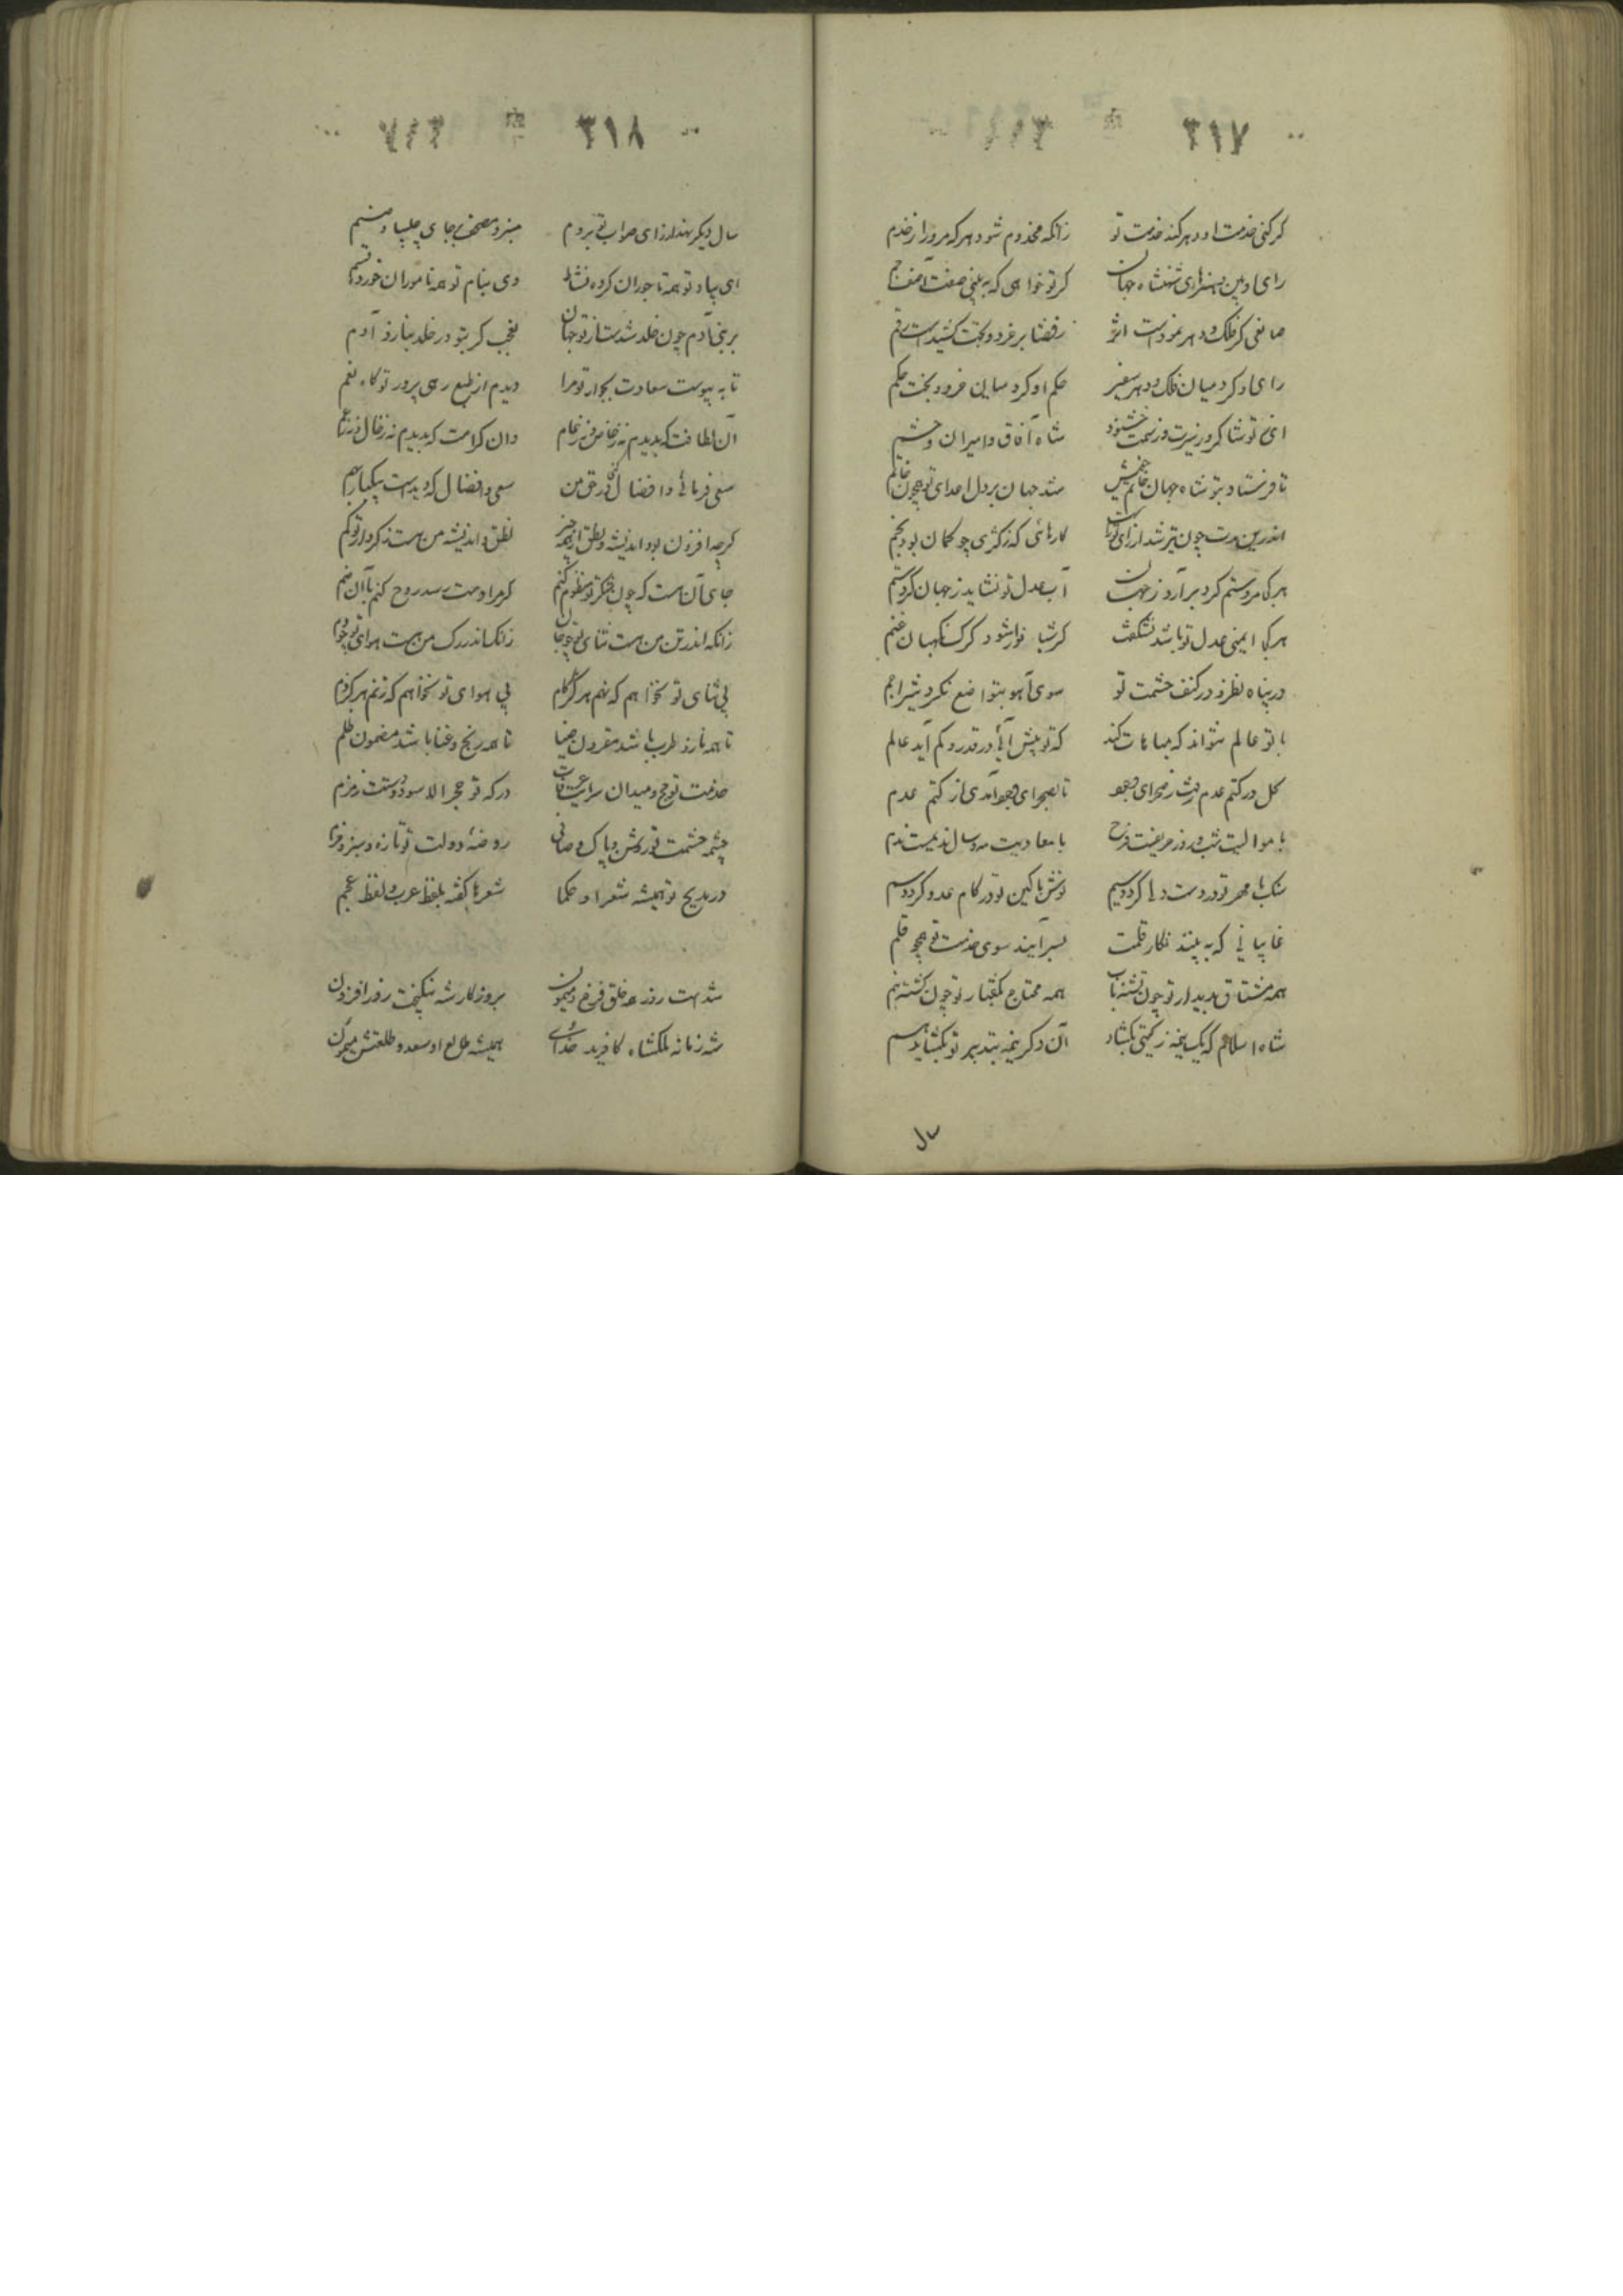 ۳۱۷
کر کنی خدمت او دهر کند خدمت تو زانکه مخدوم شود هر که مر او را ز خدم
رای او بین و هنرهای شهنشاه جهان کر تو خواهی که به بینی صفت آصف جم
صانعی کز فلک و دهر نمودست اثر
رای او کرد میان فلک و دهر سفیر حکم او کرد میان خرد و بخت حکم
شاه آفاق و امیران و حشم
تا فرستاد بتو شاه جهان خاتم خویش شد جهان بر دل اعدای تو چون خاتم
اندرین مدت چون تیر شد از رای تو راست کارهائی که ز کژی چو کمان بود بخم
هر کجا مرد ستم کرد بر آرد ز جهان آب عدل تو نشاید ز جهان کرد ستم
هر کجا ایمنی عدل تو باشد نشکفت کر شبانوار شود کرک نکهبان غنم
در پناه نظر و در کنف حشمت تو سوی آهو بتواضع نکرد شیر اجم
با تو عالم نتواند که مباهات کند که تو بیش آئی در قدر و کم آید عالم
کل در کتم عدم رفت ز صحرای وجود تا بصحرای وجود آمدی از کتم عدم
با موالیت شب و روز حریفست فرح با معادیت مه و سال ندیمست ندم
سنک با مهر تو در دست ولی کردد سیم نوش با کین تو در کام عدو کردد سم
غایبانی که به بینند نکار قلمت بسر آیند سوی خدمت تو همچو قلم
همه مشتاق بدیدار تو چون تشنه بآب همه محتاج بکفتار تو چون کشته بنم
شاه اسلام که یک نیمه ز کیتی بکشاد آن دکر نیمه بتدبیر تو بکشاید هم
سال
۳۱۸
سال دیکر بنهد از رای صواب تو بروم منبر و مصحف بر جای چلیپا و صنم
ای بیاد تو همه تاجوران کرده نشاط وی بنام تو همه ناموران خورده قسم
بر بنی آدم چون خلد شدست از تو جهان نه عجب کر بتو در خلد بنازد آدم
تا به پیوست سعادت بجوار تو مرا دیدم از طبع رهی پرور تو کاه نعم
آن لطافت که بدیدم نه ز خال و نه ز عم وان کرامت که بدیدم
سعی فرمائی و افضال کنی در حق من سعی و افضال که دیدست بیکبار بهم
کرچه افزون بود اندیشه و نطق از همه چیز نطق و اندیشه من هست ز کردار تو کم
جای آنست که چون شکر تو منظوم کنم کر مرا دست رسد روح کنم با آن ضم
زانکه اندر تن من هست ثنای تو چو جان زانکه اندر رک من هست هوای تو چو دم
بی ثنای تو نخواهم که نهم هرکز کام بی هوای تو نخواهم که زنم هرکز دم
تا همه ناز و طرب باشد مقرون ضیا تا همه رنج و عنا باشد مضمون ظلم
خدمت تو حج و میدان سرایت عرفات درکه تو حجر الاسود و دستت زمزم
چشمه حشمت تو روشن و پاک و صافی روضه دولت تو تازه و سبز و خرم
در مدیح تو همیشه شعرا و حکما شعرها کفته بلفظ عرب و لفظ عجم
شدست روزه خلق فرخ و میمون بروزکار شه نیکبخت روز افزون
شه زمانه ملکشاه کافرید خدای همیشه طالع او سعد و طلعتش میمون